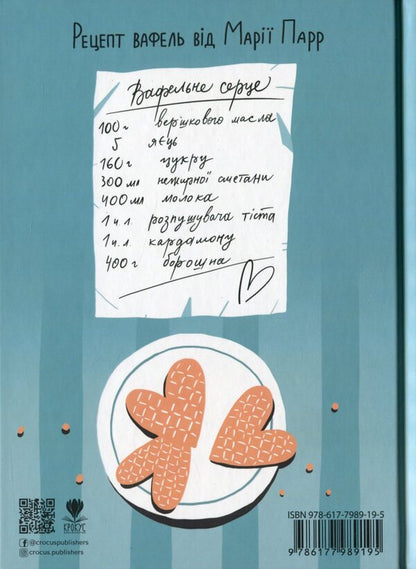 Рецепт вафель від Марії Парр
Вафельне серце
100 г вершкового масла
5 яєць
160 г цукру
300 мл нежирної сметани
400 мл молока
1 ч.л. розпушувача тіста
1 ч.л. кардамону
400 г борошна
КРОКУС
/crocuspublishers
crocus.publishers
ISBN 978-617-7989-19-5
9 786177 989195